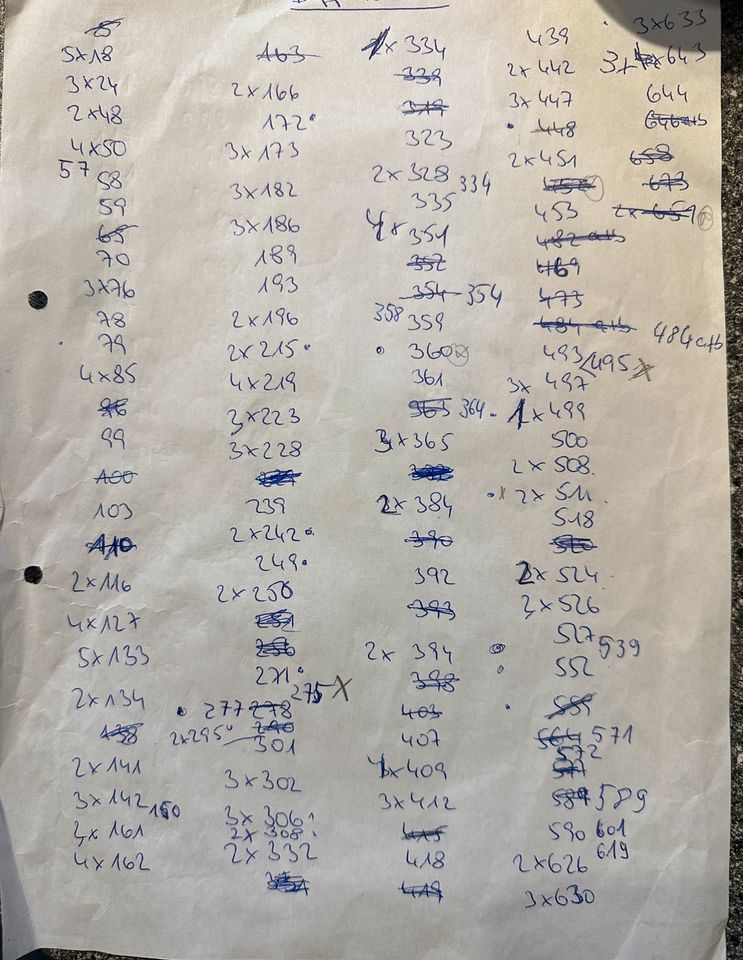 5×18
3×24
2×48
4×50
57
58
59
65
70
3×76
78
79
4×85
99
100
103
110
2×116
4×127
5×133
2×134
138
2×141
3×142
150
2×161
4×162
163
2×166
172
3×173
3×182
3×186
189
193
2×196
2×215
4×219
3×223
3×228
239
2×242
249
2×250
251
256
271
275 X
277 278
2×295 290
301
3×302
3×306
2×308
2×332
1× 334
339
319
323
2×328 334
335
4× 351
352
354 354
358 359
360
361
363 364
3×365
2×384
390
392
393
2× 394
398
403
407
4×409
3×412
415
418
419
439
2×442
3×447
448
2×451
453
482a+b
469
473
484 a+b 484a+b
493 495 X
3× 497
1×499
500
2×508
2×511
518
520
2×524
2×526
527 539
552
559
564 571
572
587 589
590 601
2×626 619
3×630
3×633
3× 643
644
646a+b
658
673
2×651